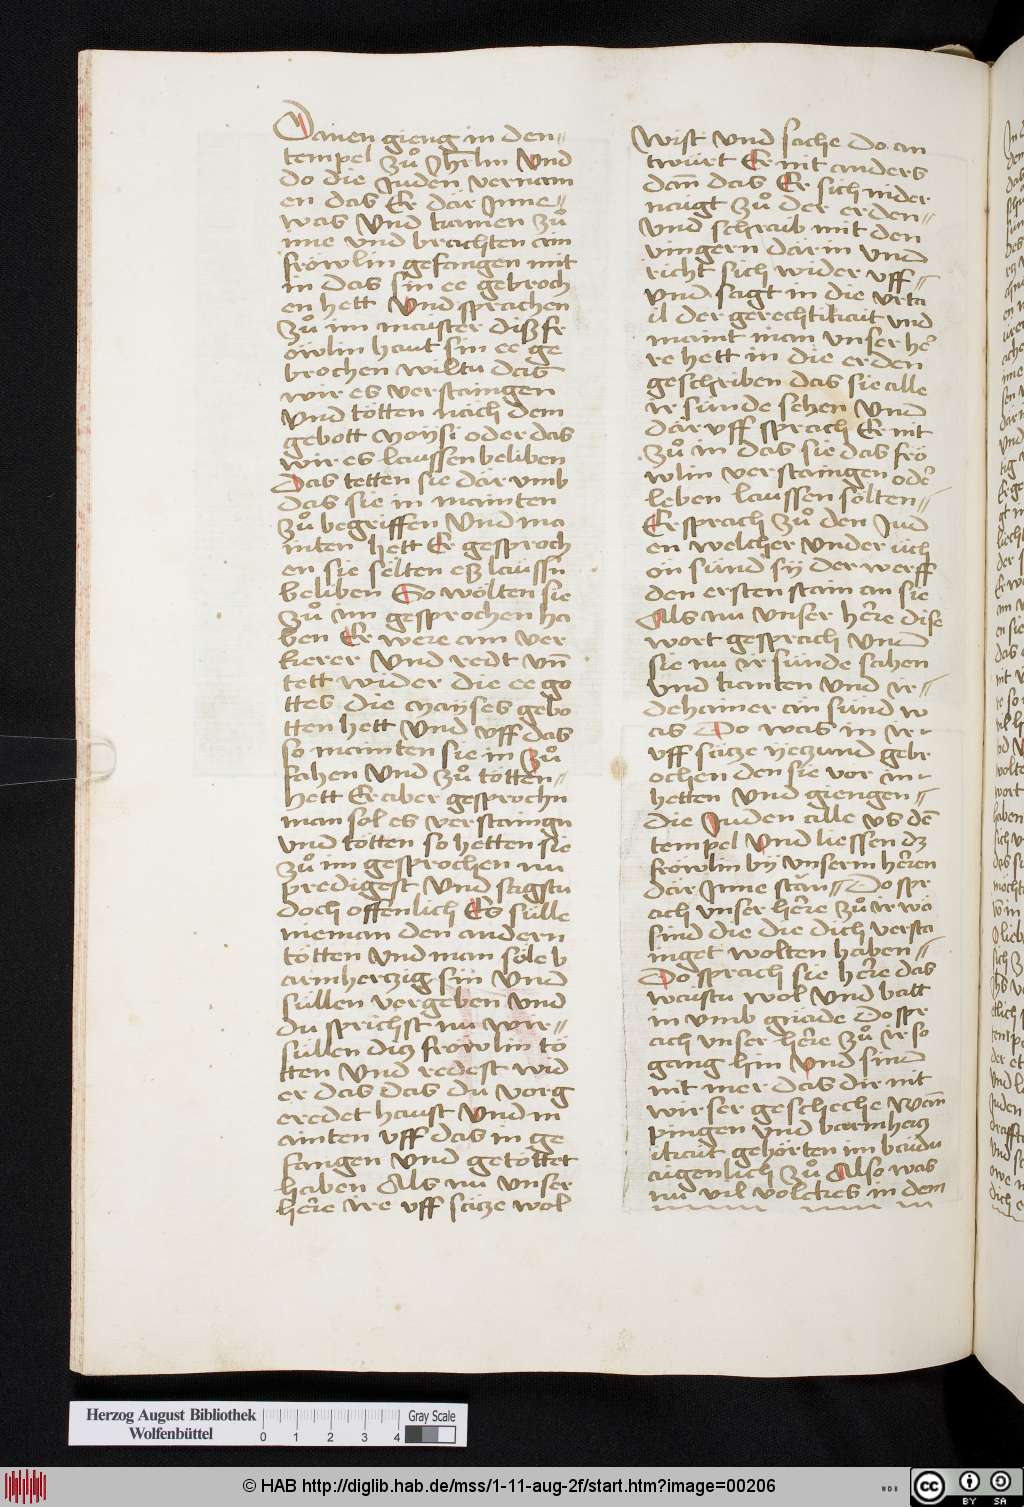 Dainen gieng in den=
tempel zuͦ Jhrlm Vnd
do die Juden vernam
en das Er dar Jnne=
was Vnd kamen zuͦ
ime vnd brachten ain
fröwlin gefangen mit
in das sin ee gebroch
en hett Vnd sprachen
zuͦ im maister diß fr
öwlin haut sin ee ge
brochen wiltu das
wir es verstaingen
Vnd tötten nach dem
gebott moysi oder das
wir es laussen beliben
Das tetten sie dar vmb
das sie in mainten
zuͦ begriffen Vnd ma
inten hett Er gesproch
en sie sölten eß laussn
beliben So wölten sie
zuͦ im gesprochen ha
ben Er were ain ver
kerer Vnd redt vn̄
tett wider die ee go
ttes die moyses gebo
tten hett Vnd vff das
so mainten sie in zuͦ
fahen Vnd zuͦ tötten=
hett Er aber gesprochn
man sol es verstaingn
vnd tötten so hetten sie
zuͦ im gesprochen nu
predigest Vnd sagstu
doch offenlich Es sülle
nieman den andern
tötten Vnd man söle b
armhertzig sin Vnd
süllen vergeben Vnd
du sprichst nu wir=
süllen diß fröwlin tö
tten Vnd redest wid
er das das du vorg
eredet haust Vnd m
ainten vff das in ge
fangen Vnd getöttet
haben Als nu vnser
here ire vff sätze wol
wist Vnd sache do an
twürt Er nit anders
dan̄ das Er sich nider
naigt zuͦ der erden=
Vnd schraib mit den
vingern dar in Vnd
richt sich wider vff=
Vnd sagt in die vrta
il der gerechtikait vnd
maint man vnser he
re hett in die erden
geschriben das sie alle
ir sünde sehen Vnd
dar vff sprach Er nit
zuͦ in das sie das frö
wlin verstaingen oder
leben laussen sölten=
Er sprach zuͦ den Jud
en welcher vnder üch
on sünd sÿ der werff
den ersten stain an sie
Als nu vnser here dise
wort gesprach Vnd
sie nu ir sünde sahen
Vnd kanten Vnd ir=
dehainer an sünd w
as Do was in ir
vff sätze yetzund gebr
ochen den sie vor im
hetten Vnd giengen=
die Juden alle vs dē
tempel Vnd liessen dz
fröwlin by vnserm heren
dar Jnne stan= Do spr
ach vnser here zuͦ ir wa
sind die die dich versta
inget wolten haben=
Do sprach sie here das
waistu wol Vnd batt
in vmb gnäde Do spr
ach vnser here zuͦ ir so
gang hin Vnd sind
nit mer das dir nit
wirser gescheche wan̄
pingen vnd barmhertz
ikait gehörten im baidu
aigenlich zuͦ Also was
nu vil volckes in dem
Herzog August Bibliothek
Wolfenbüttel
0 1 2 3 4
Gray Scale
© HAB http://diglib.hab.de/mss/1-11-aug-2f/start.htm?image=00206
WDB
cc BY SA